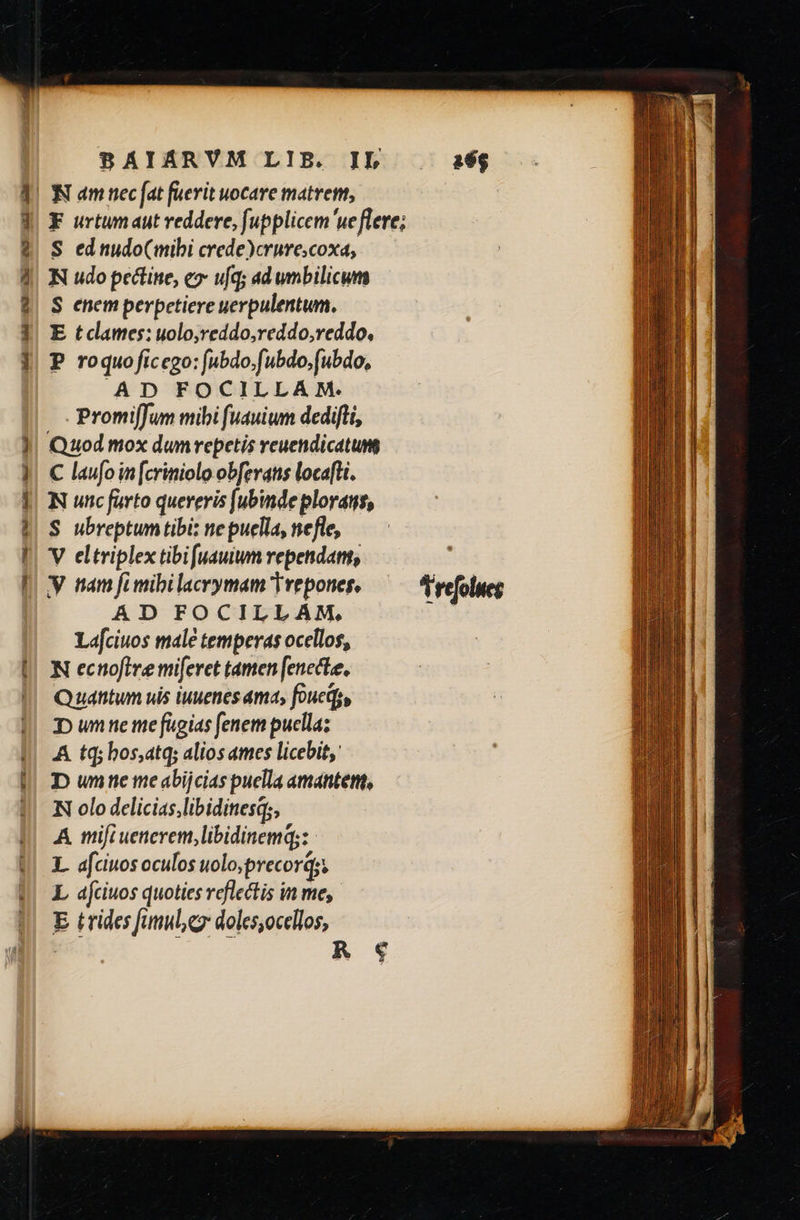 BAIARVM LIB. II, 265
N am nec ſat fuerit uocare matrem,
F urtum aut reddere, ſupplicem ue flere;
S ed nudo(mihi crede)crure,coxa,
N udo pectine, & uſq; ad umbilicum
S enem perpetiere uerpulentum.
E t clames: uolo,reddo,reddo,reddo.
P roquo ſic ego: ſubdo,ſubdo,ſubdo,
AD FOCILLAM.
Promiſſum mihi ſuauium dediſti,
Quod mox dum repetis reuendicatum
C lauſo in ſcriniolo obſerans locaſti.
N unc furto quereris ſubinde plorans,
S ubreptum tibi: ne puella, nefle,
V el triplex tibi ſuauium rependam,
V nam ſi mihi lacrymam †repones. †reſolues
AD FOCILLAM,
Laſciuos malè temperas ocellos,
N ec noſtræ miſeret tamen ſenectæ.
Quantum uis iuuenes ama, foueq́;,
D um ne me fugias ſenem puella;
A tq; hos,atq; alios ames licebit,
D um ne me abijcias puella amantem,
N olo delicias,libidinesq́;,
A miſi uenerem,libidinemq́;:
L aſciuos oculos uolo,precorq́;,
L aſciuos quoties reflectis in me,
E t rides ſimul,& doles,ocellos,
R 5